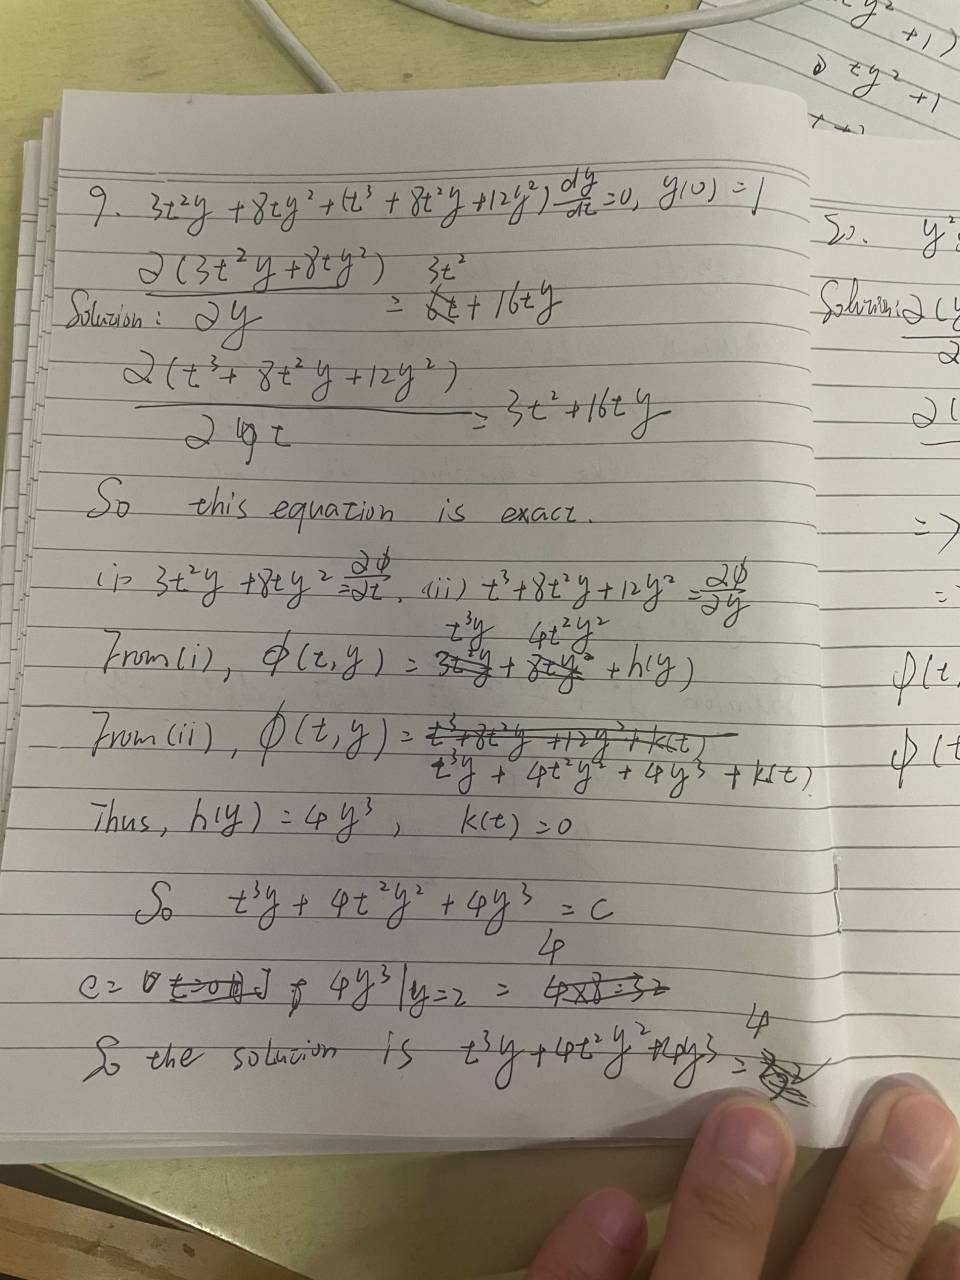 xy² +1)
② ty² +1
9. 3t²y + 8ty² + (t³ + 8t²y + 12y²) dy/dt = 0, y(0) = 1
Solution: ∂(3t²y + 8ty²)/∂y = 3t² + 16ty
∂(t³ + 8t²y + 12y²)/∂t = 3t² + 16ty
So this equation is exact.
(i) 3t²y + 8ty² = ∂ϕ/∂t, (ii) t³ + 8t²y + 12y² = ∂ϕ/∂y
From (i), ϕ(t, y) = t³y + 4t²y² + h(y)
From (ii), ϕ(t, y) = t³ + 8t²y + 12y² + k(t)
t³y + 4t²y² + 4y³ + k(t)
Thus, h(y) = 4y³, k(t) = 0
So t³y + 4t²y² + 4y³ = C
C = 4y³|y=2 = 4 4×8=32
So the solution is t³y + 4t²y² + 4y³ = 4
y²
Solution: ∂(y
∂(
=>
=
ϕ(t,
ϕ(t